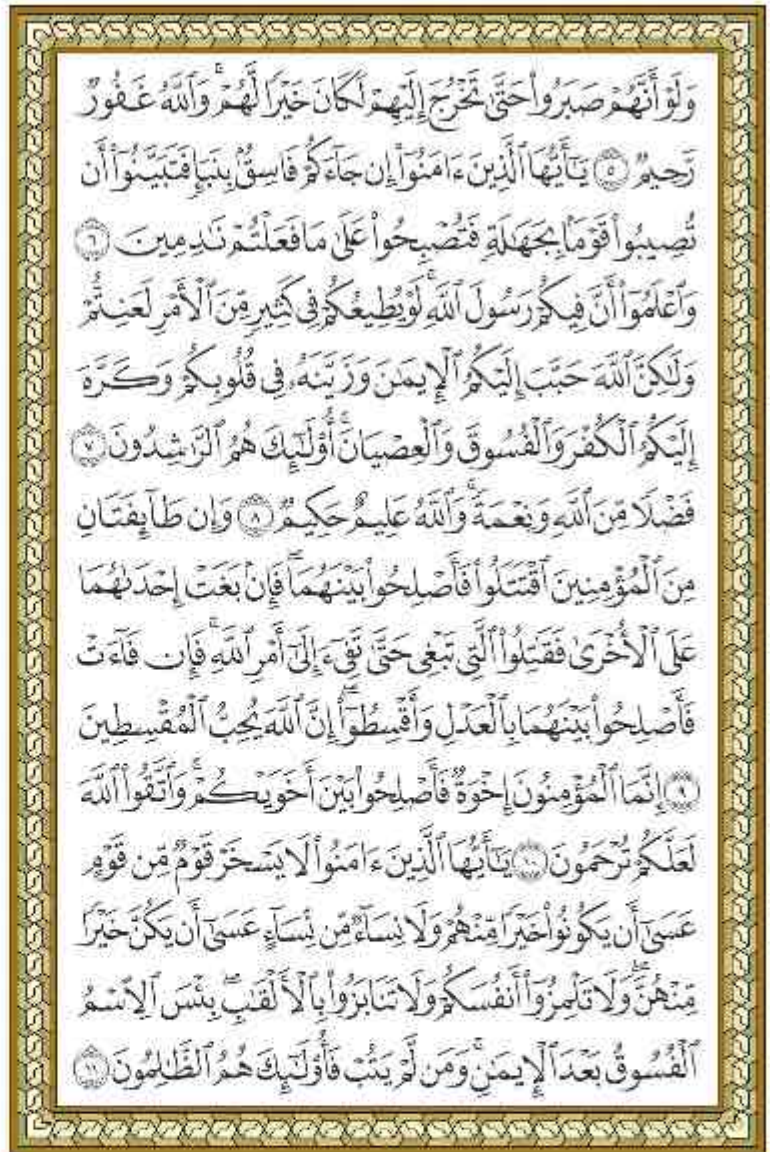 وَلَوْ أَنَّهُمْ صَبَرُوا۟ حَتَّىٰ تَخْرُجَ إِلَيْهِمْ لَكَانَ خَيْرًا لَّهُمْ ۚ وَٱللَّهُ غَفُورٌ
رَّحِيمٌ ٥ يَـٰٓأَيُّهَا ٱلَّذِينَ ءَامَنُوٓا۟ إِن جَآءَكُمْ فَاسِقٌۢ بِنَبَإٍ فَتَبَيَّنُوٓا۟ أَن
تُصِيبُوا۟ قَوْمًۢا بِجَهَـٰلَةٍ فَتُصْبِحُوا۟ عَلَىٰ مَا فَعَلْتُمْ نَـٰدِمِينَ ٦
وَٱعْلَمُوٓا۟ أَنَّ فِيكُمْ رَسُولَ ٱللَّهِ ۚ لَوْ يُطِيعُكُمْ فِى كَثِيرٍ مِّنَ ٱلْأَمْرِ لَعَنِتُّمْ
وَلَـٰكِنَّ ٱللَّهَ حَبَّبَ إِلَيْكُمُ ٱلْإِيمَـٰنَ وَزَيَّنَهُۥ فِى قُلُوبِكُمْ وَكَرَّهَ
إِلَيْكُمُ ٱلْكُفْرَ وَٱلْفُسُوقَ وَٱلْعِصْيَانَ ۚ أُو۟لَـٰٓئِكَ هُمُ ٱلرَّٰشِدُونَ ٧
فَضْلًا مِّنَ ٱللَّهِ وَنِعْمَةً ۚ وَٱللَّهُ عَلِيمٌ حَكِيمٌ ٨ وَإِن طَآئِفَتَانِ
مِنَ ٱلْمُؤْمِنِينَ ٱقْتَتَلُوا۟ فَأَصْلِحُوا۟ بَيْنَهُمَا ۖ فَإِنۢ بَغَتْ إِحْدَىٰهُمَا
عَلَى ٱلْأُخْرَىٰ فَقَـٰتِلُوا۟ ٱلَّتِى تَبْغِى حَتَّىٰ تَفِىٓءَ إِلَىٰٓ أَمْرِ ٱللَّهِ ۚ فَإِن فَآءَتْ
فَأَصْلِحُوا۟ بَيْنَهُمَا بِٱلْعَدْلِ وَأَقْسِطُوٓا۟ ۖ إِنَّ ٱللَّهَ يُحِبُّ ٱلْمُقْسِطِينَ
٩ إِنَّمَا ٱلْمُؤْمِنُونَ إِخْوَةٌ فَأَصْلِحُوا۟ بَيْنَ أَخَوَيْكُمْ ۚ وَٱتَّقُوا۟ ٱللَّهَ
لَعَلَّكُمْ تُرْحَمُونَ ١٠ يَـٰٓأَيُّهَا ٱلَّذِينَ ءَامَنُوا۟ لَا يَسْخَرْ قَوْمٌ مِّن قَوْمٍ
عَسَىٰٓ أَن يَكُونُوا۟ خَيْرًا مِّنْهُمْ وَلَا نِسَآءٌ مِّن نِّسَآءٍ عَسَىٰٓ أَن يَكُنَّ خَيْرًا
مِّنْهُنَّ ۖ وَلَا تَلْمِزُوٓا۟ أَنفُسَكُمْ وَلَا تَنَابَزُوا۟ بِٱلْأَلْقَـٰبِ ۖ بِئْسَ ٱلِٱسْمُ
ٱلْفُسُوقُ بَعْدَ ٱلْإِيمَـٰنِ ۚ وَمَن لَّمْ يَتُبْ فَأُو۟لَـٰٓئِكَ هُمُ ٱلظَّـٰلِمُونَ ١١